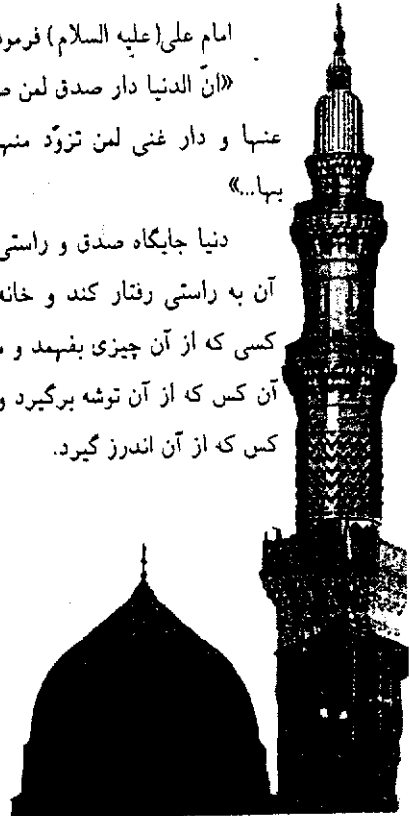 امام علی(علیه السلام) فرمود
«انّ الدنیا دار صدق لمن ص
عنها و دار غنی لمن تزوّد منه
بها...»
دنیا جایگاه صدق و راستی
آن به راستی رفتار کند و خانه
کسی که از آن چیزی بفهمد و م
آن کس که از آن توشه برگیرد و
کس که از آن اندرز گیرد.